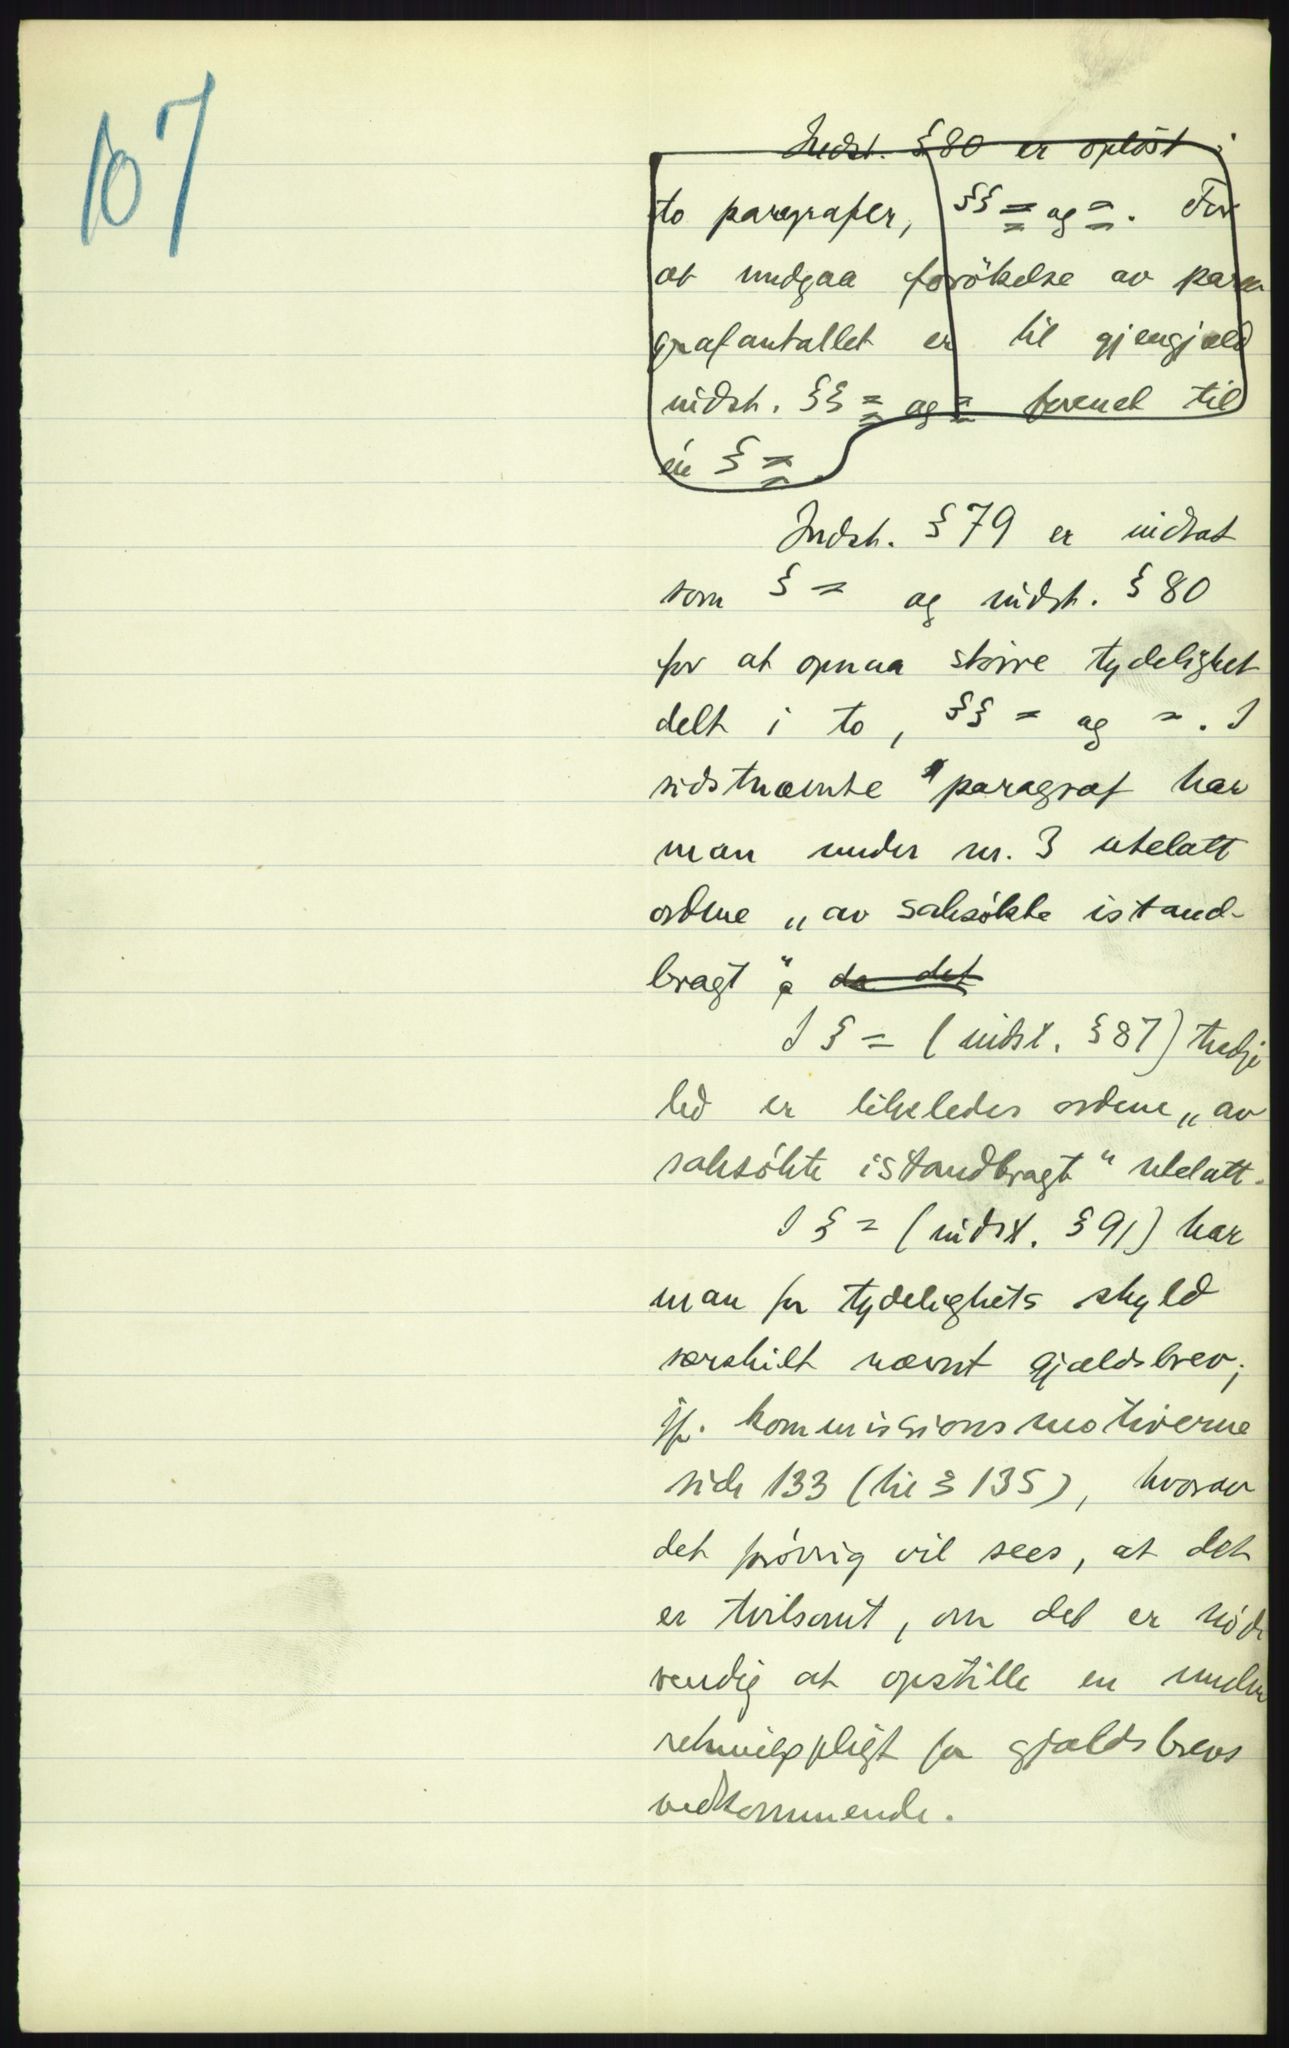 107
Indst. § 80 er opløst i
to paragrafer, §§ = og =. For
at undgaa forøkelse av para
grafantallet er til gjengjæld
indst. §§ = og = forenet til
én § =.
Indst. § 79 er indtat
som § = og indst. § 80
for at opnaa større tydelighet
delt i to, §§ = og =. I
sidstnævnte paragraf har
man under nr. 3 utelatt
ordene „av saksøkte istand-
bragt“.  da det
I § = (indst. § 87) tredje
led er likeledes ordene „av
saksøkte istandbragt“ utelatt.
I § = (indst. § 91) har
man for tydelighets skyld
særskilt nævnt gjældsbrev;
jfr. kommissionsmotiverne
side 133 (til § 135), hvorav
det forøvrig vil sees, at det
er tvilsomt, om det er nød
vendig at opstille en under
retningspligt for gjældsbrevs
vedkommende.